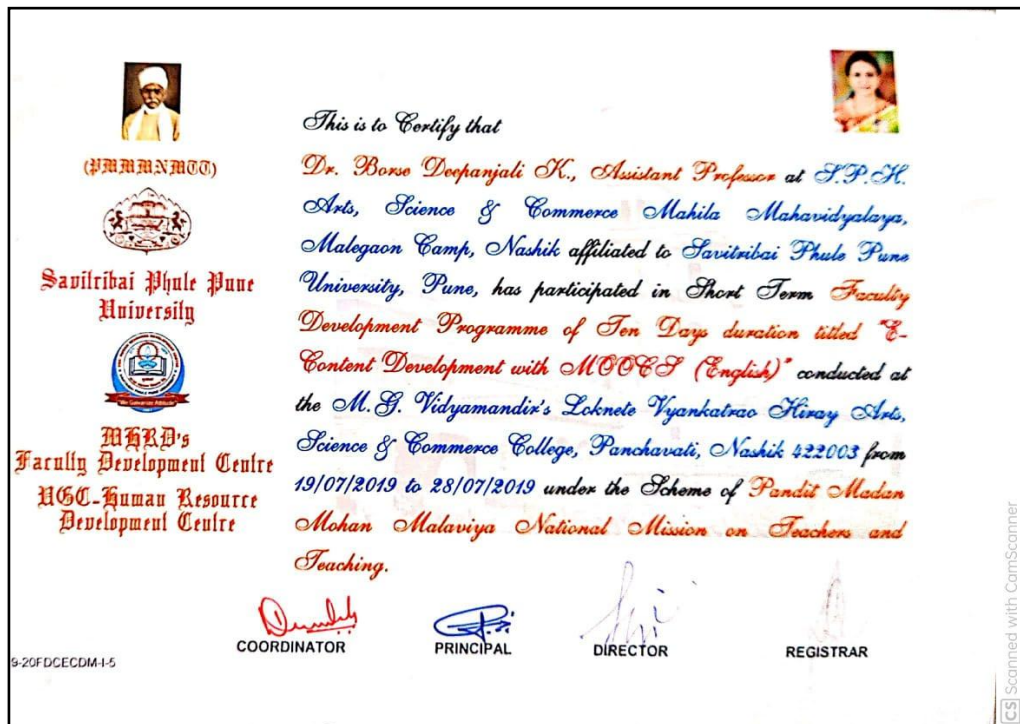 (PMMMNMTT)
Savitribai Phule Pune
University
MHRD's
Faculty Development Centre
UGC-Human Resource
Development Centre
This is to Certify that
Dr. Borse Deepanjali K., Assistant Professor at S.P.H.
Arts, Science & Commerce Mahila Mahavidyalaya,
Malegaon Camp, Nashik affiliated to Savitribai Phule Pune
University, Pune, has participated in Short Term Faculty
Development Programme of Ten Days duration titled "E-
Content Development with MOOCS (English)" conducted at
the M.G. Vidyamandir's Loknete Vyankatrao Hiray Arts,
Science & Commerce College, Panchavati, Nashik 422003 from
19/07/2019 to 28/07/2019 under the Scheme of Pandit Madan
Mohan Malaviya National Mission on Teachers and
Teaching.
COORDINATOR
PRINCIPAL
DIRECTOR
REGISTRAR
9-20FDCECDM-I-5
CS Scanned with CamScanner